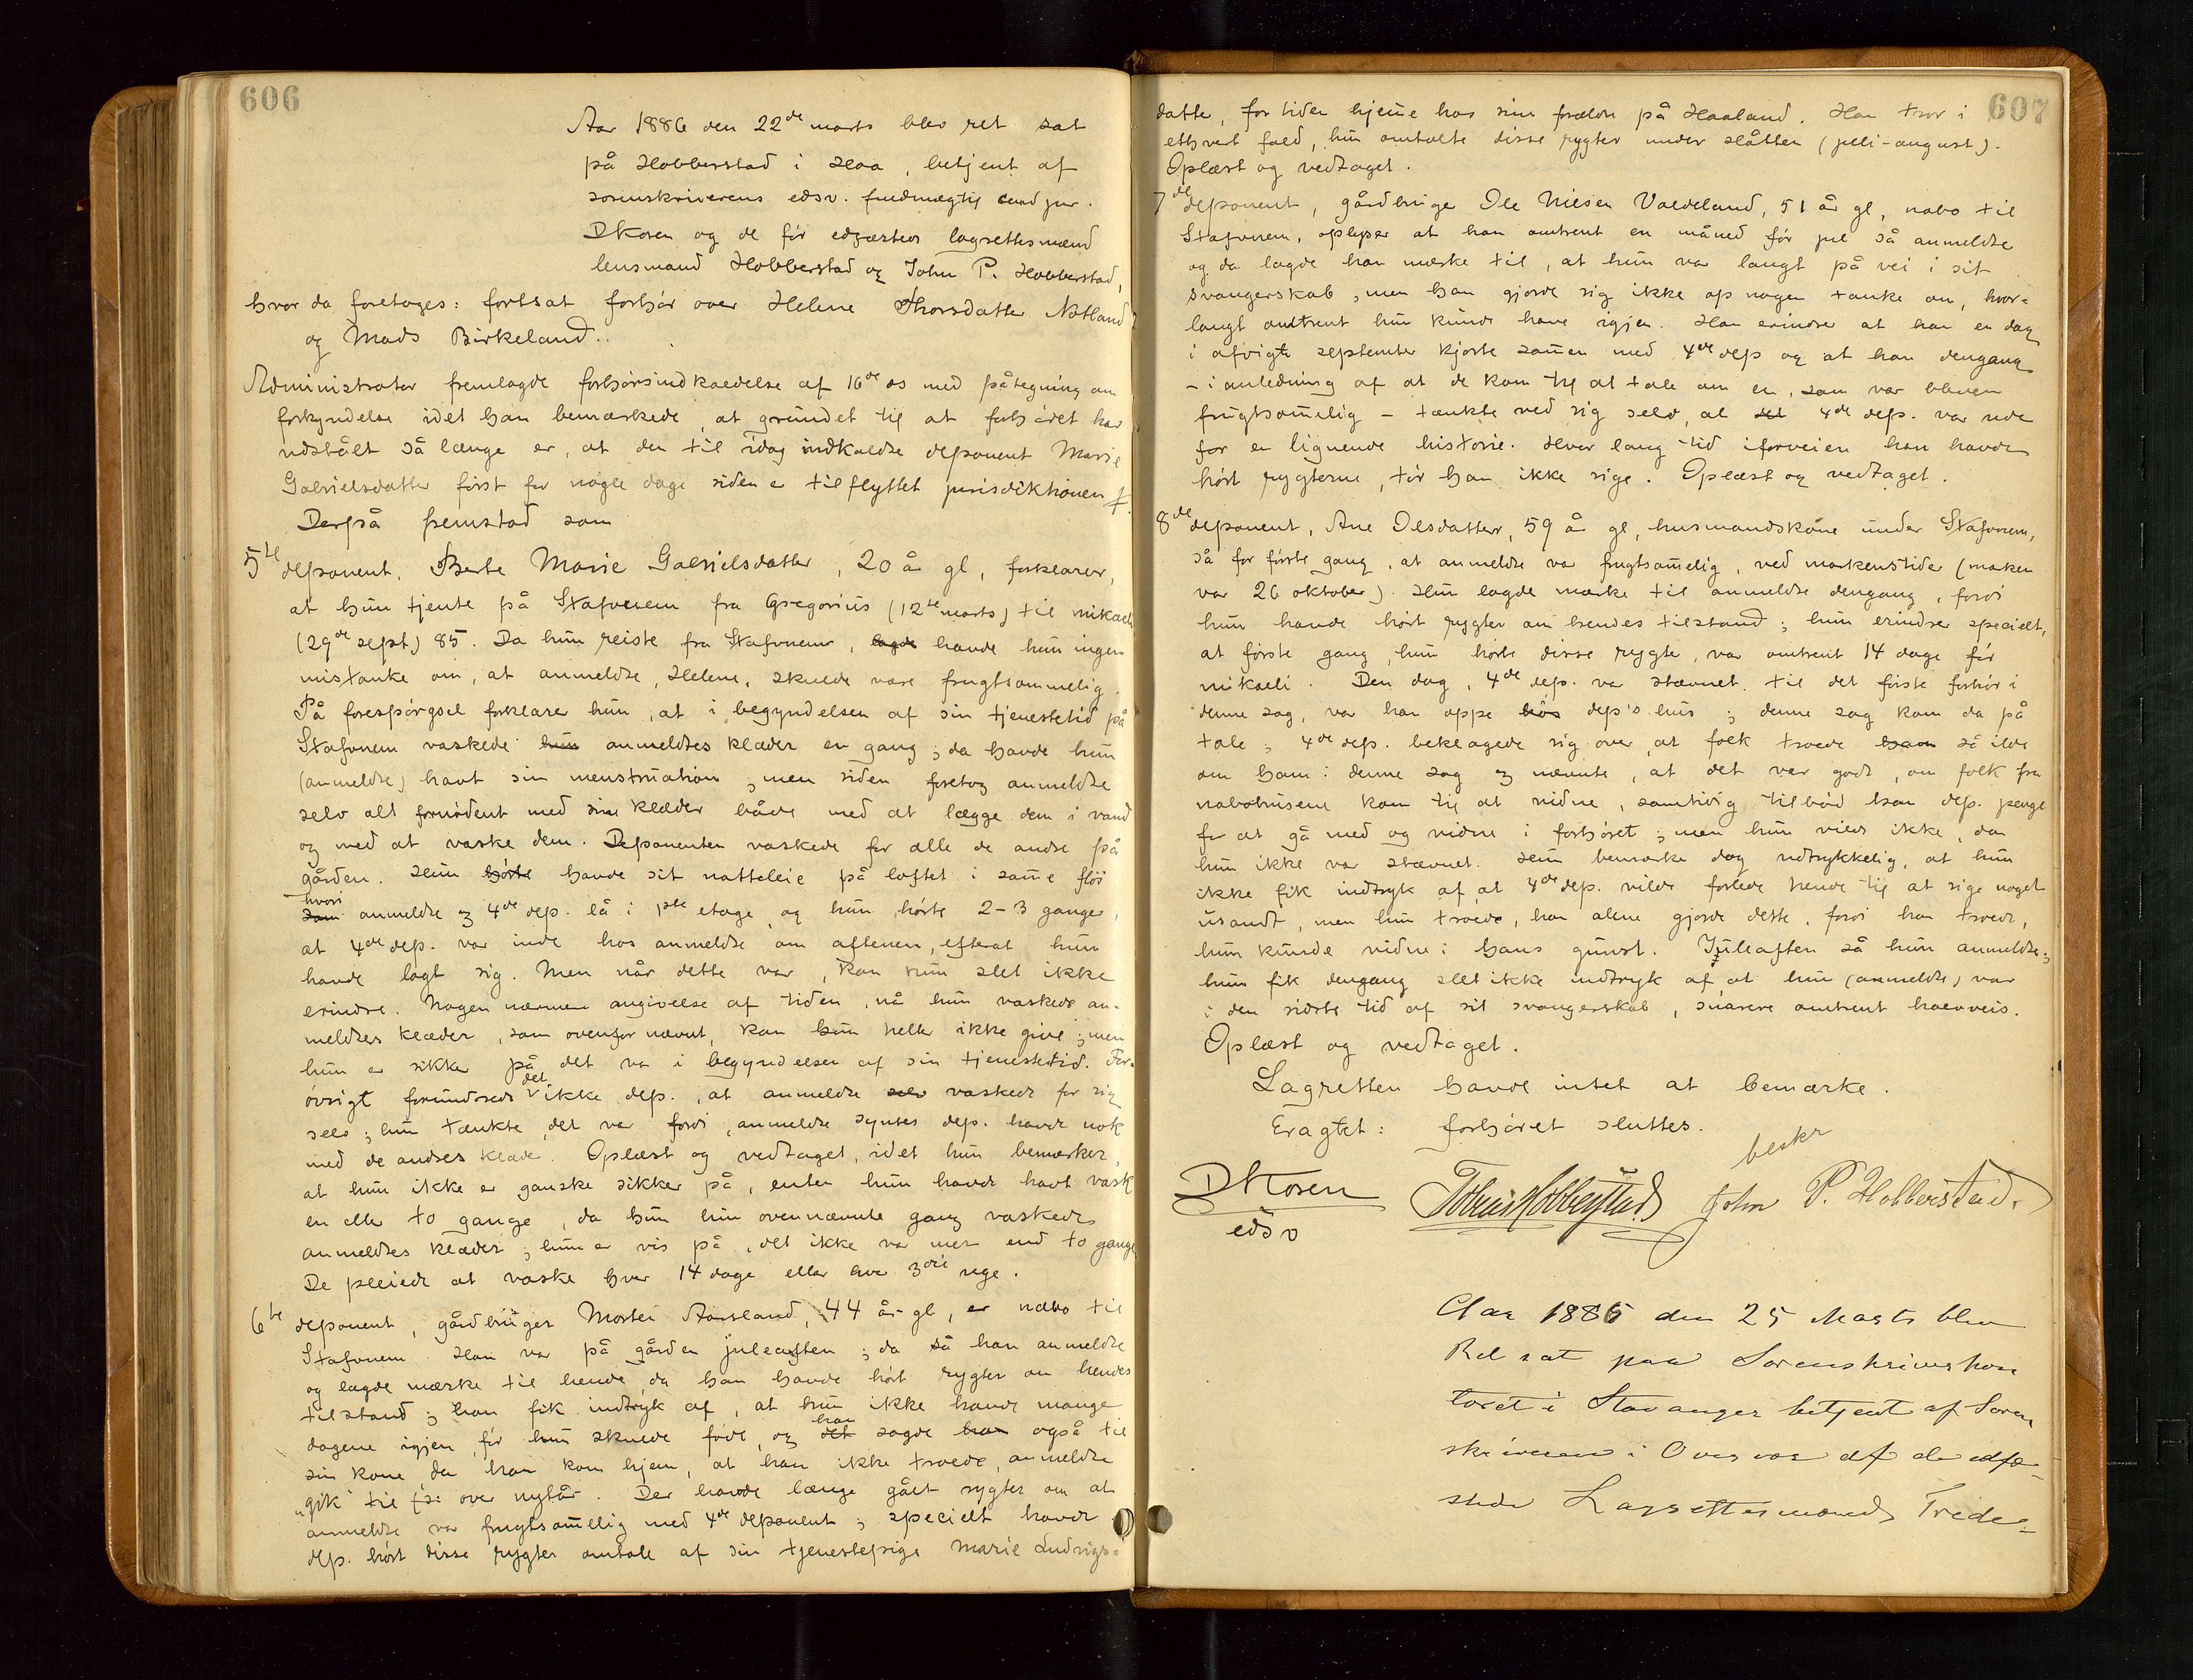 606
Aar 1886 den 22de marts blev ret sat
på Hobberstad i Haa, betjent af
sorenskriverens edsv. fuldmægtig cand jur.
DKosen og de før edfæstede lagrettesmænd
lensmand Hobberstad og John P. Hobberstad,
hvor da foretoges: fortsat forhør over Helene Thorsdatter Netland
og Mads Birkeland.
Administrator fremlagde forhørsindkaldelse af 16de ds med påtegning om
forkyndelse idet han bemærkede, at grunden til at forhøret har
udstået så længe er, at den til idag indkaldte deponent Marie
Gabrielsdatter først for nogle dage siden er tilflyttet jurisdiktionen
Derpå fremstod som
5te deponent, Berte Marie Gabrielsdatter, 20 år gl, forklarer,
at hun tjente på Stafvnem fra Gregorius (12te marts) til mikaeli
(29de sept) 85. Da hun reiste fra Stafvnem, lagde havde hun ingen
mistanke om, at anmeldte, Helene, skulde være frugtsommelig.
På forespørgsel forklarer hun, at i begyndelsen af sin tjenestetid på
Stafvnem vaskede hun anmeldtes klæder en gang; da havde hun
(anmeldte) havt sin menstruation; men siden foretog anmeldte
selv alt fornødent med sine klæder både med at lægge dem i vand
og med at vaske dem. Deponenten vaskede for alle de andre på
gården. Hun hørte havde sit natteleie på loftet i samme fløi
hvori
som anmeldte og 4de dep. lå i 1ste etage, og hun hørte 2-3 gange,
at 4de dep. var inde hos anmeldte om aftenen, efterat hun
havde lagt sig. Men når dette var, kan hun slet ikke
erindre. Nogen nærmere angivelse af tiden, når hun vaskede an-
meldtes klæder, som ovenfor nævnt, kan hun heller ikke give; men
hun er sikker på det var i begyndelsen af sin tjenestetid. For-
det
øvrigt forundrede ikke dep., at anmeldte selv vaskede for sig
selv; hun tænkte, det var fordi, anmeldte syntes dep. havde nok
med de andres klæder. Oplæst og vedtaget, idet hun bemærker,
at hun ikke er ganske sikker på, enten hun havde havt vask
en eller to gange, da hun hin ovennævnte gang vaskede
anmeldtes klæder; hun er vis på, det ikke var mer end to gange
De pleiede at vaske hver 14 dage eller hver 3die uge.
6te deponent, gårdbruger Morten Aarsland, 44 år gl, er nabo til
Stafvnem. Han var på gården juleaften; da så han anmeldte
og lagde mærke til hende, da han havde hørt rygter om hendes
tilstand; han fik indtryk af, at hun ikke havde mange
han
dagene igjen, før hun skulde føde, og det sagde han også til
sin kone, da han kom hjem, at han ikke troede, anmeldte
"gik" til (ɔ: over nytår. Der havde længe gået rygter om at
anmeldte var frugtsommelig med 4de deponent; specielt havde
dep. hørt disse rygter omtale af sin tjenestepige Marie Ludvigs-
607
datter, for tiden hjemme hos sine forældre på Haaland. Han tror i
ethvert fald, hun omtalte disse rygter under slåtten (juli-august).
Oplæst og vedtaget.
7de deponent, gårdbruger Ole Nilsen Vaedeland, 51 år gl, nabo til
Stafvnem, oplyser at han omtrent en måned før jul så anmeldte
og da lagde han mærke til, at hun var langt på vei i sit
svangerskab, men han gjorde sig ikke op nogen tanke om, hvor-
langt omtrent hun kunde have igjen. Han erindrer at han en dag
i afvigte september kjørte sammen med 4de dep og at han dengang
- i anledning af at de kom til at tale om en, som var bleven
frugtsommelig - tænkte ved sig selv, at det 4de dep. var ude
for en lignende historie. Hvor lang tid iforveien han havde
hørt rygterne, tør han ikke sige. Oplæst og vedtaget.
8de deponent, Ane Olsdatter, 59 år gl, husmandskone under Stafvnem,
så for første gang, at anmeldte var frugtsommelig, ved markenstider (marken
var 26 oktober). Hun lagde mærke til anmeldte dengang, fordi
hun havde hørt rygter om hendes tilstand; hun erindrer specielt,
at første gang, hun hørte disse rygter, var omtrent 14 dage før
mikaeli. Den dag, 4de dep. var stævnet til det første forhør i
denne sag, var han oppe hos dep's hus; denne sag kom da på
tale; 4de dep. beklagede sig over, at folk troede ham så ilde
om ham i denne sag og nævnte, at det var godt, om folk fra
nabohusene kom til at vidne, samtidig tilbød han dep. penge
for at gå med og vidne i forhøret; men hun vilde ikke, da
hun ikke var stævnet. Hun bemærker dog udtrykkelig, at hun
ikke fik indtryk af, at 4de dep. vilde forlede hende til at sige noget
usandt, men hun troede, han alene gjorde dette, fordi han troede,
hun kunde vidne i hans gunst. Juleaften så hun anmeldte;
hun fik dengang slet ikke indtryk af, at hun (anmeldte) var
i den sidste tid af sit svangerskab, snarere omtrent halvveis.
Oplæst og vedtaget.
Lagretten havde intet at bemærke.
Eragtet: forhøret sluttes.
beskr
DKosen
edsv
Tobias Hobberstad John P. Hobberstad.
Aar 1886 den 25 Marts blev
Ret sat paa Sorenskriverkon
toret i Stavanger betjent af Soren
skriveren i Overvær af de edfæ-
stede Lagrettesmænd Frede-